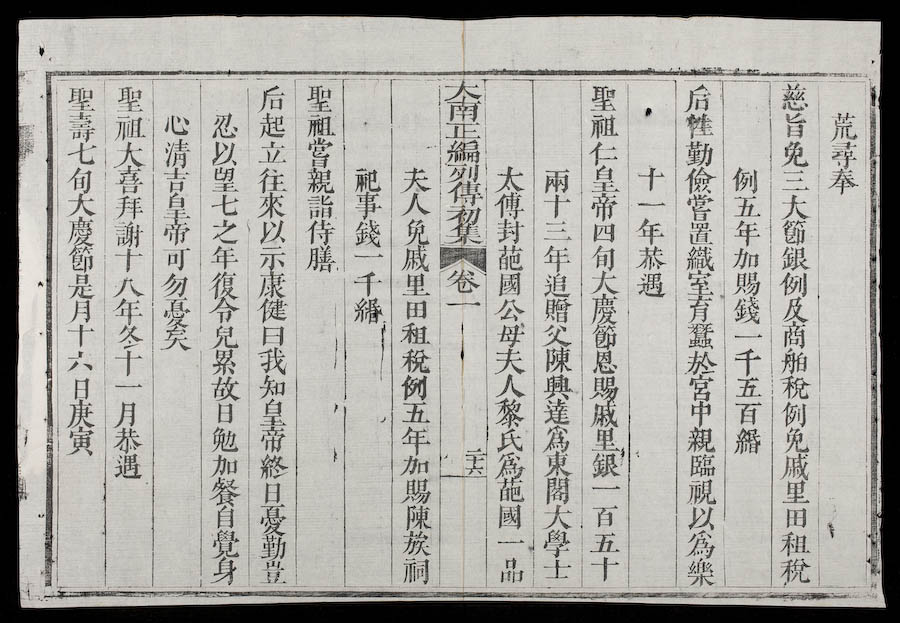 荒尋奉
慈旨免三大節銀例及商舶稅例免戚里田租稅
例五年加賜錢一千五百緡
后性勤儉嘗置織室育蠶於宮中親臨視以爲樂
十一年恭遇
聖祖仁皇帝四旬大慶節恩賜戚里銀一百五十
兩十三年追贈父陳興達爲東閣大學士
太傅封葩國公母夫人黎氏爲葩國一品
大南正編列傳初集 卷一 二十六
夫人免戚里田租稅例五年加賜陳族祠
祀事錢一千緡
聖祖嘗親詣侍膳
后起立往來以示康健曰我知皇帝終日憂勤豈
忍以望七之年復令兒累故日勉加餐自覺身
心清吉皇帝可勿憂矣
聖祖大喜拜謝十八年冬十一月恭遇
聖壽七旬大慶節是月十六日庚寅